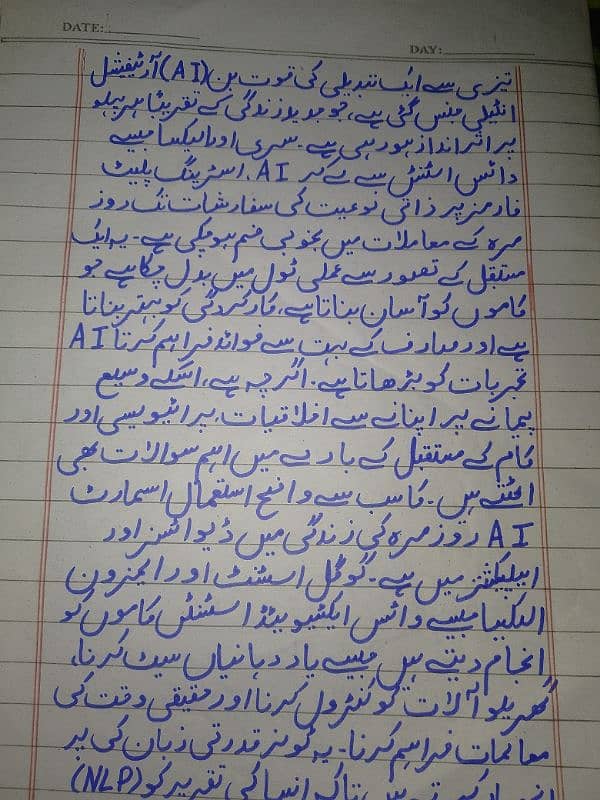 DATE:
DAY:
تیزی سے ایک تبدیلی کی قوت بن (AI) آرٹیفشل
انٹیلی جنس گئی ہے، جو جدید زندگی کے تقریباً ہر پہلو
پر اثر انداز ہو رہی ہے۔ سری اور الیکسا جیسے
وائس اسٹنٹ سے لے کر AI، اسٹرینگ پلیٹ
فارمز پر ذاتی نوعیت کی سفارشات تک روز
مرہ کے معاملات میں بخوبی ضم ہو چکی ہے۔ یہ ایک
مستقبل کے تصور سے عملی ٹول میں بدل چکا ہے جو
کاموں کو آسان بناتا ہے، کارکردگی کو بہتر بناتا
ہے اور صارف کے بہت سے فوائد فراہم کرتا AI
تجربات کو بڑھاتا ہے۔ اگرچہ ہے، اسکے وسیع
پیمانے پر اپنانے سے اخلاقیات، پرائیویسی اور
کام کے مستقبل کے بارے میں اہم سوالات بھی
اٹھتے ہیں۔ کا سب سے واضح استعمال اسمارٹ
AI روزمرہ کی زندگی میں ڈیوائسز اور
ایپلیکیشنز میں ہے۔ گوگل اسٹنٹ اور ایمزون
الیکسا جیسے وائس ایکٹیویٹڈ اسٹنٹس کاموں کو
انجام دیتے ہیں جیسے یاد دہانیاں سیٹ کرنا،
گھریلو آلات کو کنٹرول کرنا اور حقیقی وقت کی
معالمات فراہم کرنا۔ یہ ٹولز قدرتی زبان کی پر
تاکہ انسا کی تقریر کو (NLP)